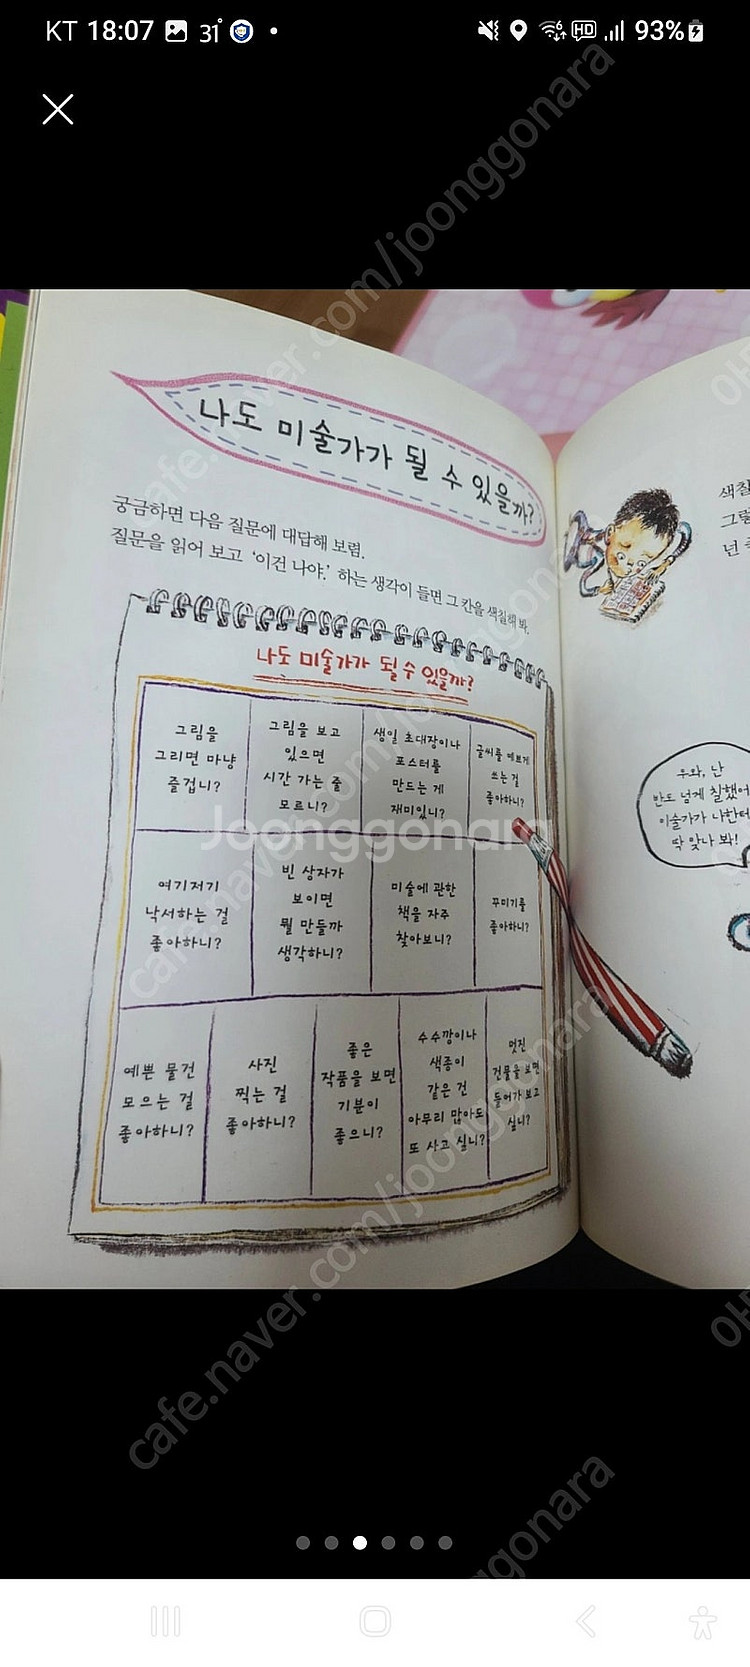 KT 18:07 31° HD 93%
나도 미술가가 될 수 있을까?
궁금하면 다음 질문에 대답해 보렴.
질문을 읽어 보고 '이건 나야.' 하는 생각이 들면 그 칸을 색칠해 봐.
나도 미술가가 될 수 있을까?
그림을
그리면 마냥
즐겁니?
그림을 보고
있으면
시간 가는 줄
모르니?
생일 초대장이나
포스터를
만드는 게
재미있니?
글씨를 예쁘게
쓰는 걸
좋아하니?
여기저기
낙서하는 걸
좋아하니?
빈 상자가
보이면
뭘 만들까
생각하니?
미술에 관한
책을 자주
찾아보니?
꾸미기를
좋아하니?
예쁜 물건
모으는 걸
좋아하니?
사진
찍는 걸
좋아하니?
좋은
작품을 보면
기분이
좋으니?
수수깡이나
색종이
같은 건
아무리 많아도
또 사고 싶니?
멋진
건물을 보면
들어가 보고
싶니?
색칠
넌
우와, 난
반도 넘게 칠했어
미술가가 나한테
딱 맞나 봐!
Joonggonara
cafe.naver.com/joonggonara
cafe.naver.com/joonggonara
cafe.naver.com/joonggonara